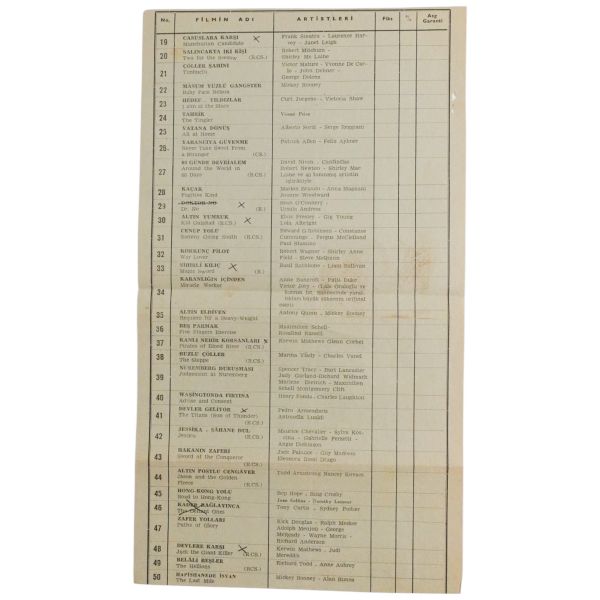 No. FİLMİN ADI ARTİSTLERİ Fiks % Asg. Garanti
19 CASUSLARA KARŞI Frank Sinatra - Laurence Har-
Manchurian Candidate vey - Janet Leigh
20 SALINCAKTA İKİ KİŞİ Robert Mitchum -
Two for the Seesaw (R.CS.) Shirley Mc Laine
21 ÇÖLLER ŞAHİNİ Victor Mature - Yvonne De Car-
Timbuctu lo - John Dehner -
George Dolenz
22 MASUM YÜZLÜ GANGSTER Mickey Rooney
Baby Face Nelson
23 HEDEF YILDIZLAR Curt Jurgens - Victoria Shaw
I aim at the Stars
24 TAHRİK
The Tingler
25 VATANA DÖNÜŞ Alberto Sordi - Serge Reggiani
All at Home
26 YABANCIYA GÜVENME Patrick Allen - Felix Aylmer
Never Take Sweet From
a Stranger (CS.)
27 80 GÜNDE DEVRİALEM David Niven - Cantinflas
Around the World in Robert Newton - Shirley Mac
80 Days (CS.) Laine ve 44 tanınmış artistin
iştirakiyle
28 KAÇAK Marlon Brando - Anna Magnani
Fugitive Kind Joanne Woodward
29 DOKTOR NO Sean O'Connery
Dr. No (R.) Ursula Andress
30 ALTIN YUMRUK Elvis Presley - Gig Young
Kid Galahad (R.CS.) Lola Albright
31 CENUP YOLU Edward G.Robinson - Constance
Sammy Going South (R.CS.) Cummings - Fergus McClelland
Paul Stassino
32 KORKUNÇ PİLOT Robert Wagner - Shirley Anne
War Lover Field - Steve McQueen
33 SİHİRLİ KILIÇ Basil Rathbone - Liam Sullivan
Magic Sword (R.)
34 KARANLIĞIN İÇİNDEN Anne Bancroft - Patty Duke
Miracle Worker Victor Jory -
35 ALTIN ELDİVEN Antony Quinn - Mickey Rooney
Requiem for a Heavy-Weight
36 BEŞ PARMAK Maximilian Schell
Five Fingers Exercise Rosalind Russell
37 KANLI NEHİR KORSANLARI Kerwin Mathews Glenn Corbet
Pirates of Blood River (R.CS.)
38 BUZLU ÇÖLLER Marina Vlady - Charles Vanel
The Steppe (R.CS.)
39 NUREMBERG DURUŞMASI Spencer Tracy - Burt Lancaster
Judgement at Nuremberg Judy Garland-Richard Widmark
Marlene Dietrich - Maximilien
Schell Montgomery Clift
40 WAŞİNGTONDA FIRTINA Henry Fonda - Charles Laughton
Advise and Consent
41 DEVLER GELİYOR Pedro Armendaris
The Titans (Son of Thunder) Antonella Lualdi
(R.CS.)
42 JESSİKA - ŞAHANE DUL Maurice Chevalier - Sylva Kos-
Jessica (R.CS.) cina - Gabriella Pallotti -
Angie Dickinson
43 HAKANIN ZAFERİ Jack Palance - Guy Madison
Sword of the Conqueror Eleonora Rossi Drago
(R.CS.)
44 ALTIN POSTLU CENGÂVER Todd Armstrong Nancy Kovack
Jason and the Golden
Fleece (R.CS.)
45 HONG KONG YOLU Bop Hope - Bing Crosby
Road to Hong-Kong Joan Collins - Dorothy Lamour
46 KADER BAĞLAYINCA Tony Curtis - Sydney Poitier
The Defiant Ones
47 ZAFER YOLLARI Kirk Douglas - Ralph Meeker
Paths of Glory Adolph Menjou - George
McReady - Wayne Morris -
Richard Anderson
48 DEVLERE KARŞI Kerwin Mathews - Judi
Jack the Giant Killer (R.CS.) Meredith
49 BELÂLI BEŞLER Richard Todd - Anne Aubrey
The Hellions (RCS.)
50 HAPİSHANEDE İSYAN Mickey Rooney - Alan Bunce
The Last Mile